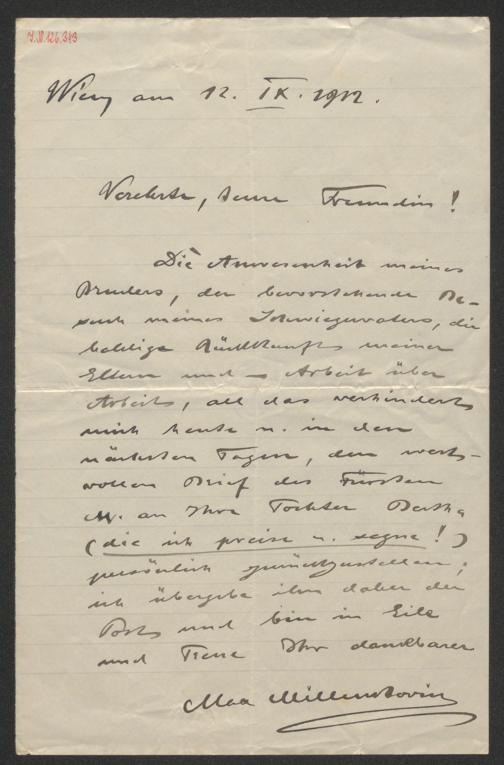 I.N. 126.383
Wien am 12. IX. 1912.
Verehrte, teure Freundin!
Die Anwesenheit meines
Bruders, der bevorstehende Be-
such meines Schwiegervaters, die
baldige Rückkunft meiner
Eltern und – Arbeit über
Arbeit, all das verhindert
mich heute u. in den
nächsten Tagen, den wert-
vollen Brief des Fürsten
M. an Ihre Tochter Bertha
(die ich preise u. segne!)
persönlich zurückzustellen;
ich übergebe ihn daher der
Post und bin in Eile
und Treue Ihr dankbarer
Max Millenkovich